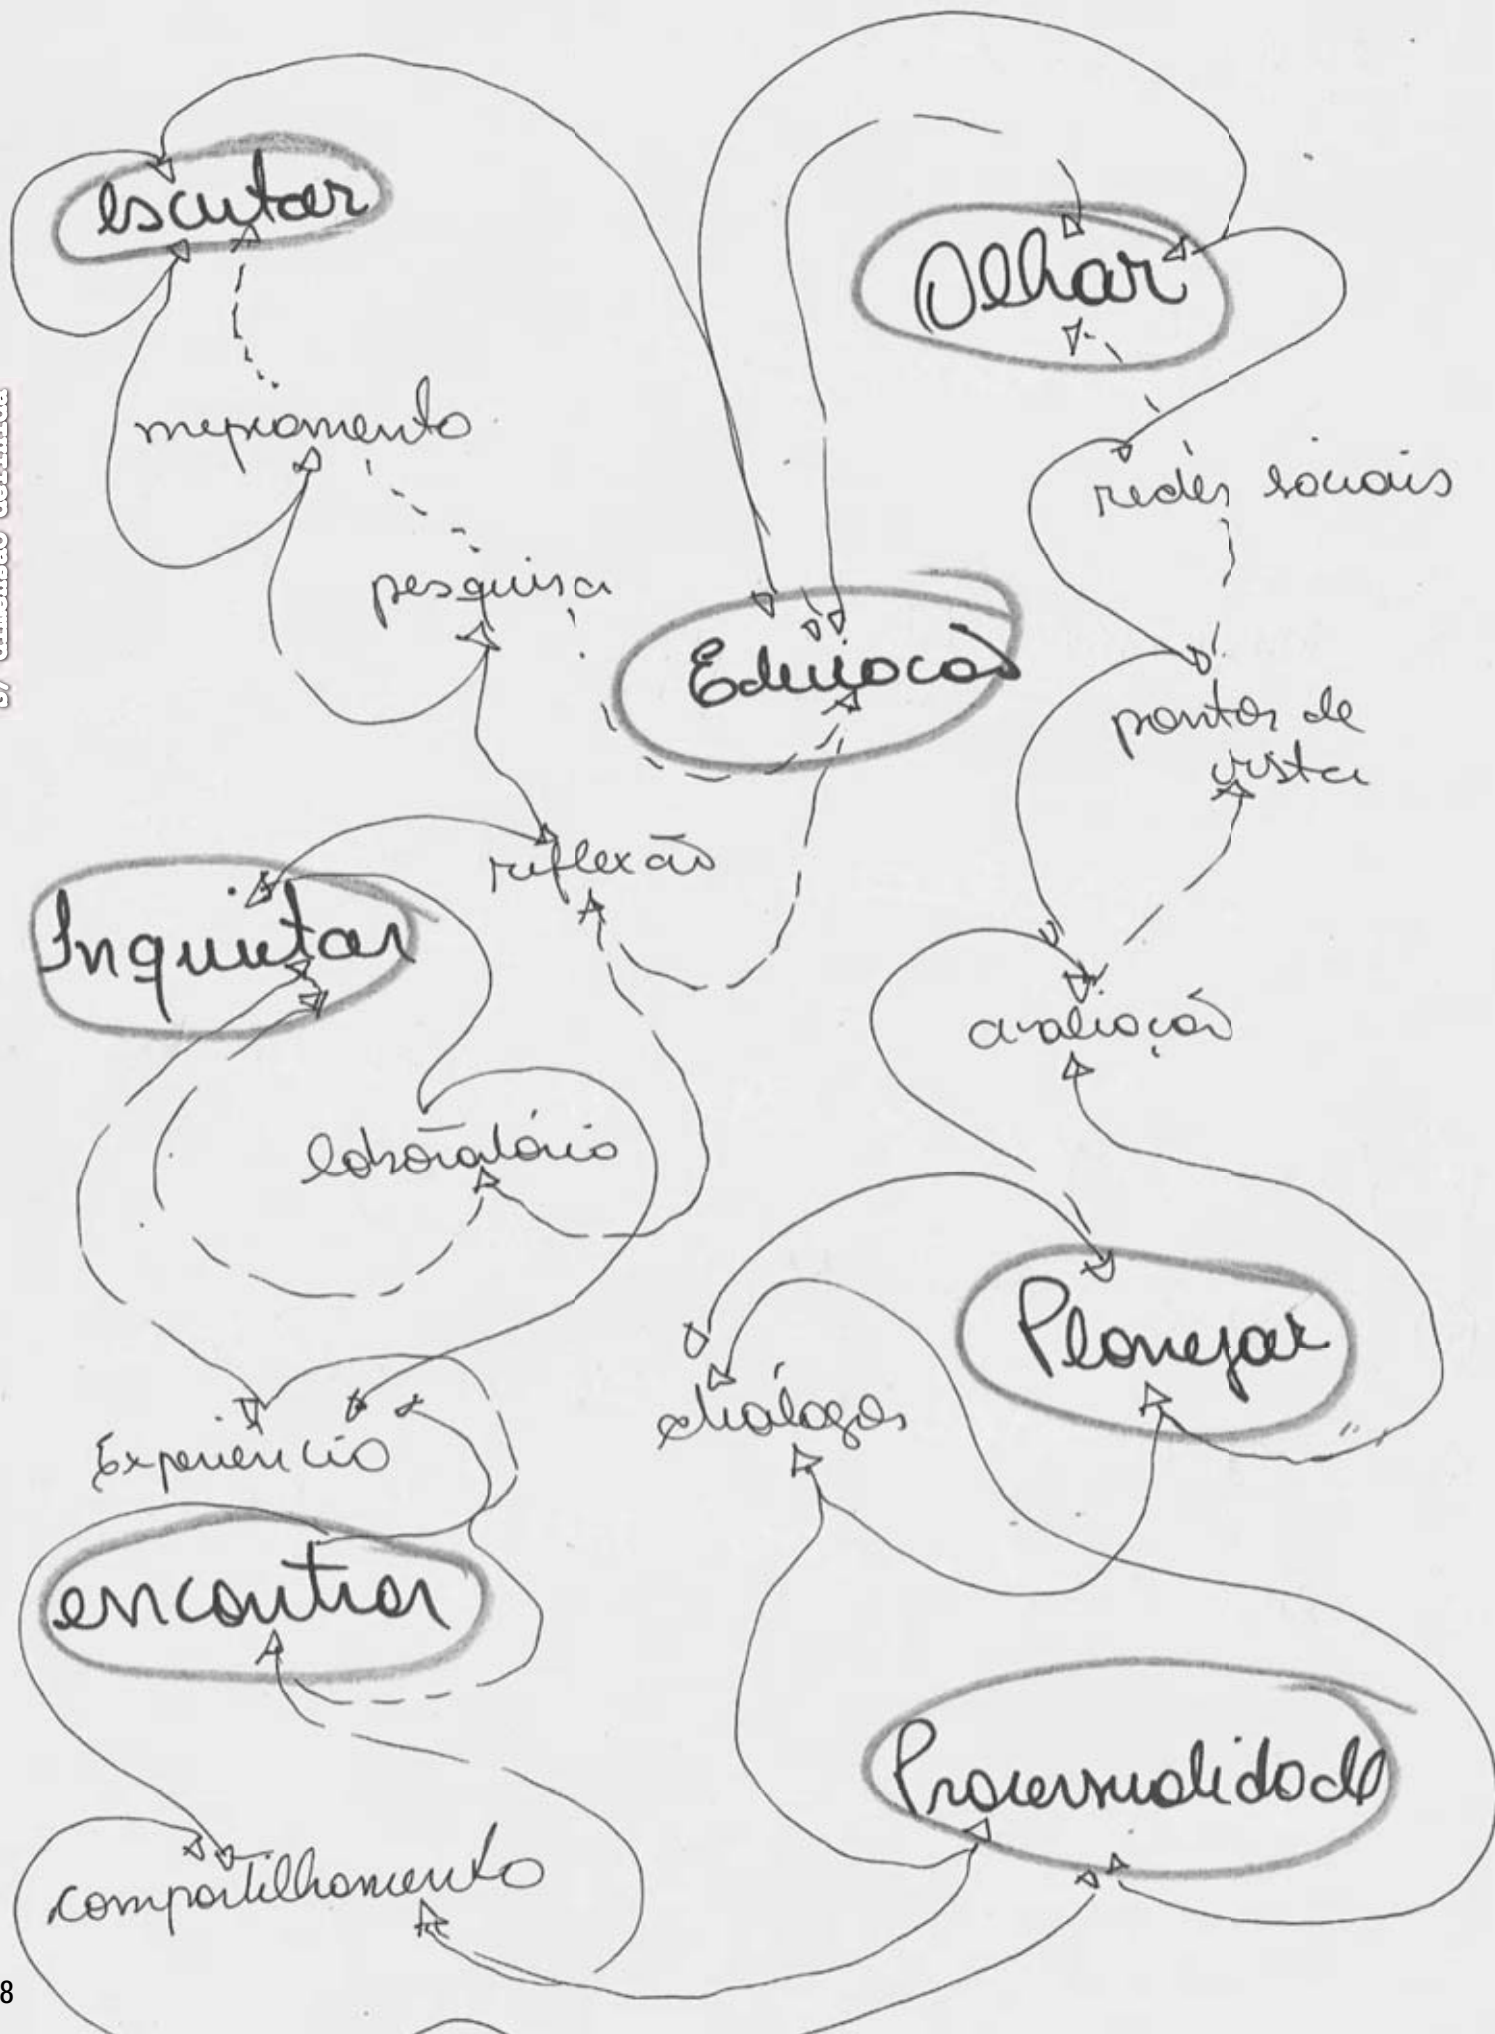 escutar
Olhar
mapeamento
redes sociais
pesquisa
Educação
pontos de
vista
reflexão
Inquietar
avaliação
laboratório
Planejar
diálogos
Experiência
encontrar
Processualidade
compartilhamento
8